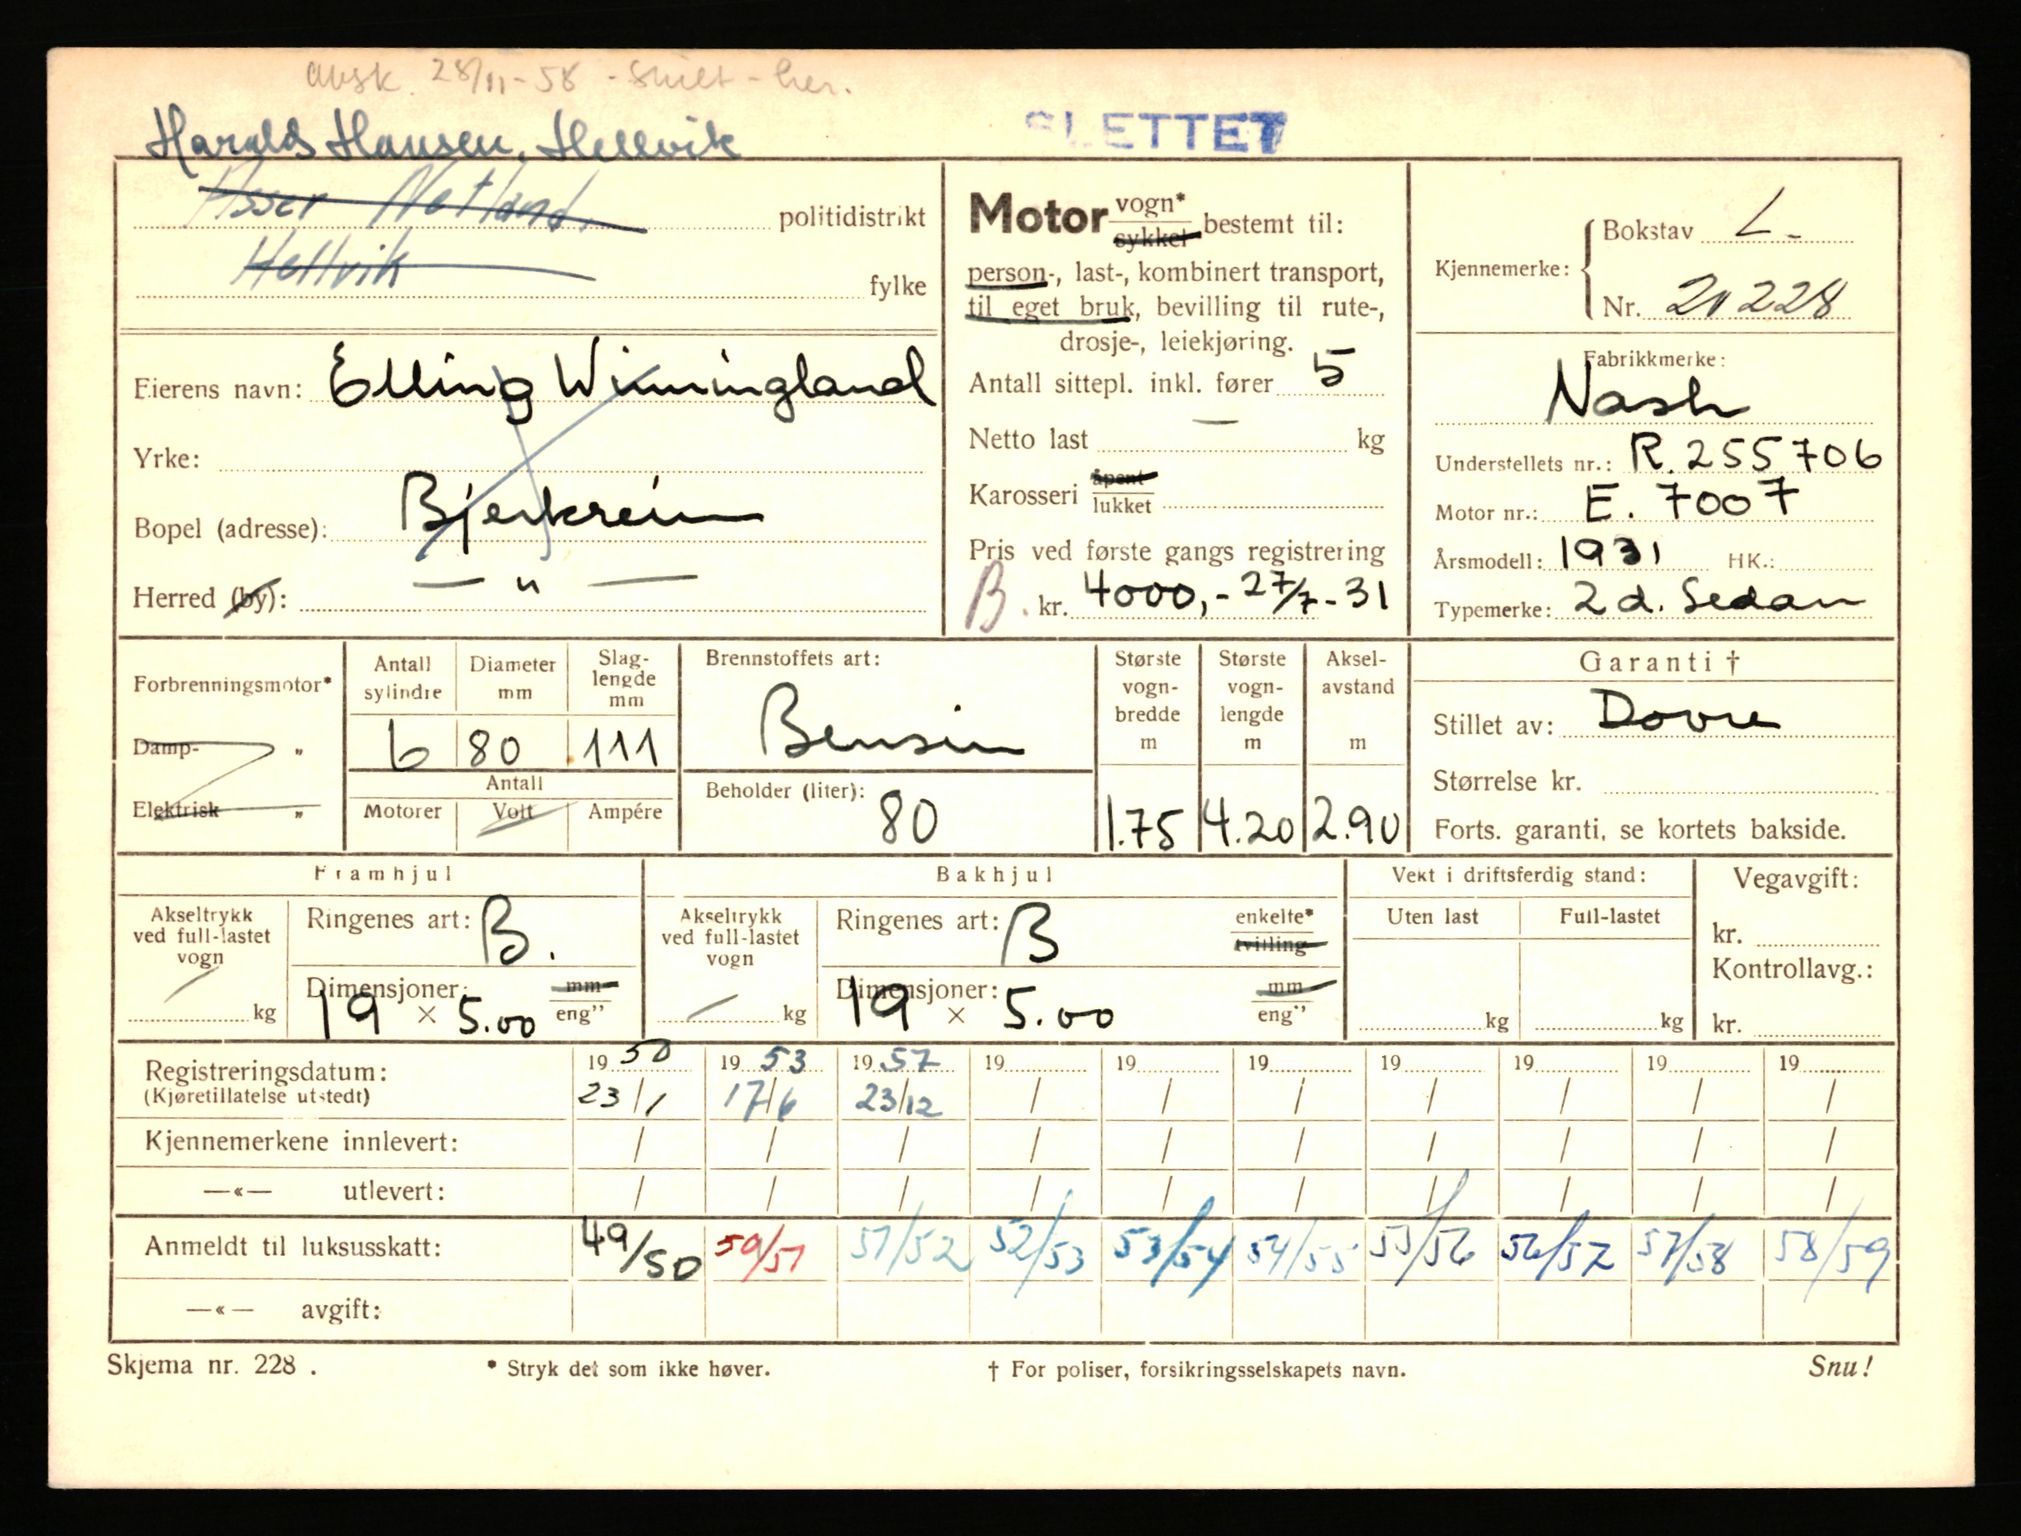 avsk. 28/11-58 - skilt - her.
Harald Hansen, Hellvik
SLETTET
Asser Netland, politidistrikt
Hellvik fylke
Eierens navn: Elling Winningland
Yrke:
Bopel (adresse): Bjerkreim
Herred (by): — " —
Motor vogn* sykkel bestemt til:
person-, last-, kombinert transport,
til eget bruk, bevilling til rute-,
drosje-, leiekjøring.
Antall sittepl. inkl. fører 5
Netto last — kg
Karosseri åpent lukket
Pris ved første gangs registrering
B. kr. 4000,- 27/7-31
Kjennemerke: Bokstav L-
Nr. 20228
Fabrikkmerke:
Nash
Understellets nr.: R. 255706
Motor nr.: E. 7007
Årsmodell: 1931 HK.:
Typemerke: 2 d. Sedan
Forbrenningsmotor*
Damp- "
Elektrisk "
Antall sylindre Diameter mm Slag-lengde mm
6 80 111
Antall
Motorer Volt Ampére
Brennstoffets art:
Bensin
Beholder (liter):
80
Største vogn-bredde m Største vogn-lengde m Aksel-avstand m
1.75 4.20 2.90
Garanti †
Stillet av: Dovre
Størrelse kr.
Forts. garanti, se kortets bakside.
Framhjul
Akseltrykk ved full-lastet vogn
— kg
Ringenes art: B.
Dimensjoner: mm
19 × 5.00 eng"
Bakhjul
Akseltrykk ved full-lastet vogn
— kg
Ringenes art: B enkelte* tvilling
Dimensjoner: mm
19 × 5.00 eng"
Vekt i driftsferdig stand:
Uten last Full-lastet
kg kg
Vegavgift:
kr.
Kontrollavg.:
kr.
Registreringsdatum: 19 50 19 53 19 57 19 19 19 19 19 19 19
(Kjøretillatelse utstedt) 23/1 17/6 23/12 / / / / / / /
Kjennemerkene innlevert: / / / / / / / / / /
—«— utlevert: / / / / / / / / / /
Anmeldt til luksusskatt: 49/50 50/51 51/52 52/53 53/54 54/55 55/56 56/57 57/58 58/59
—«— avgift:
Skjema nr. 228 . * Stryk det som ikke høver. † For poliser, forsikringsselskapets navn. Snu!